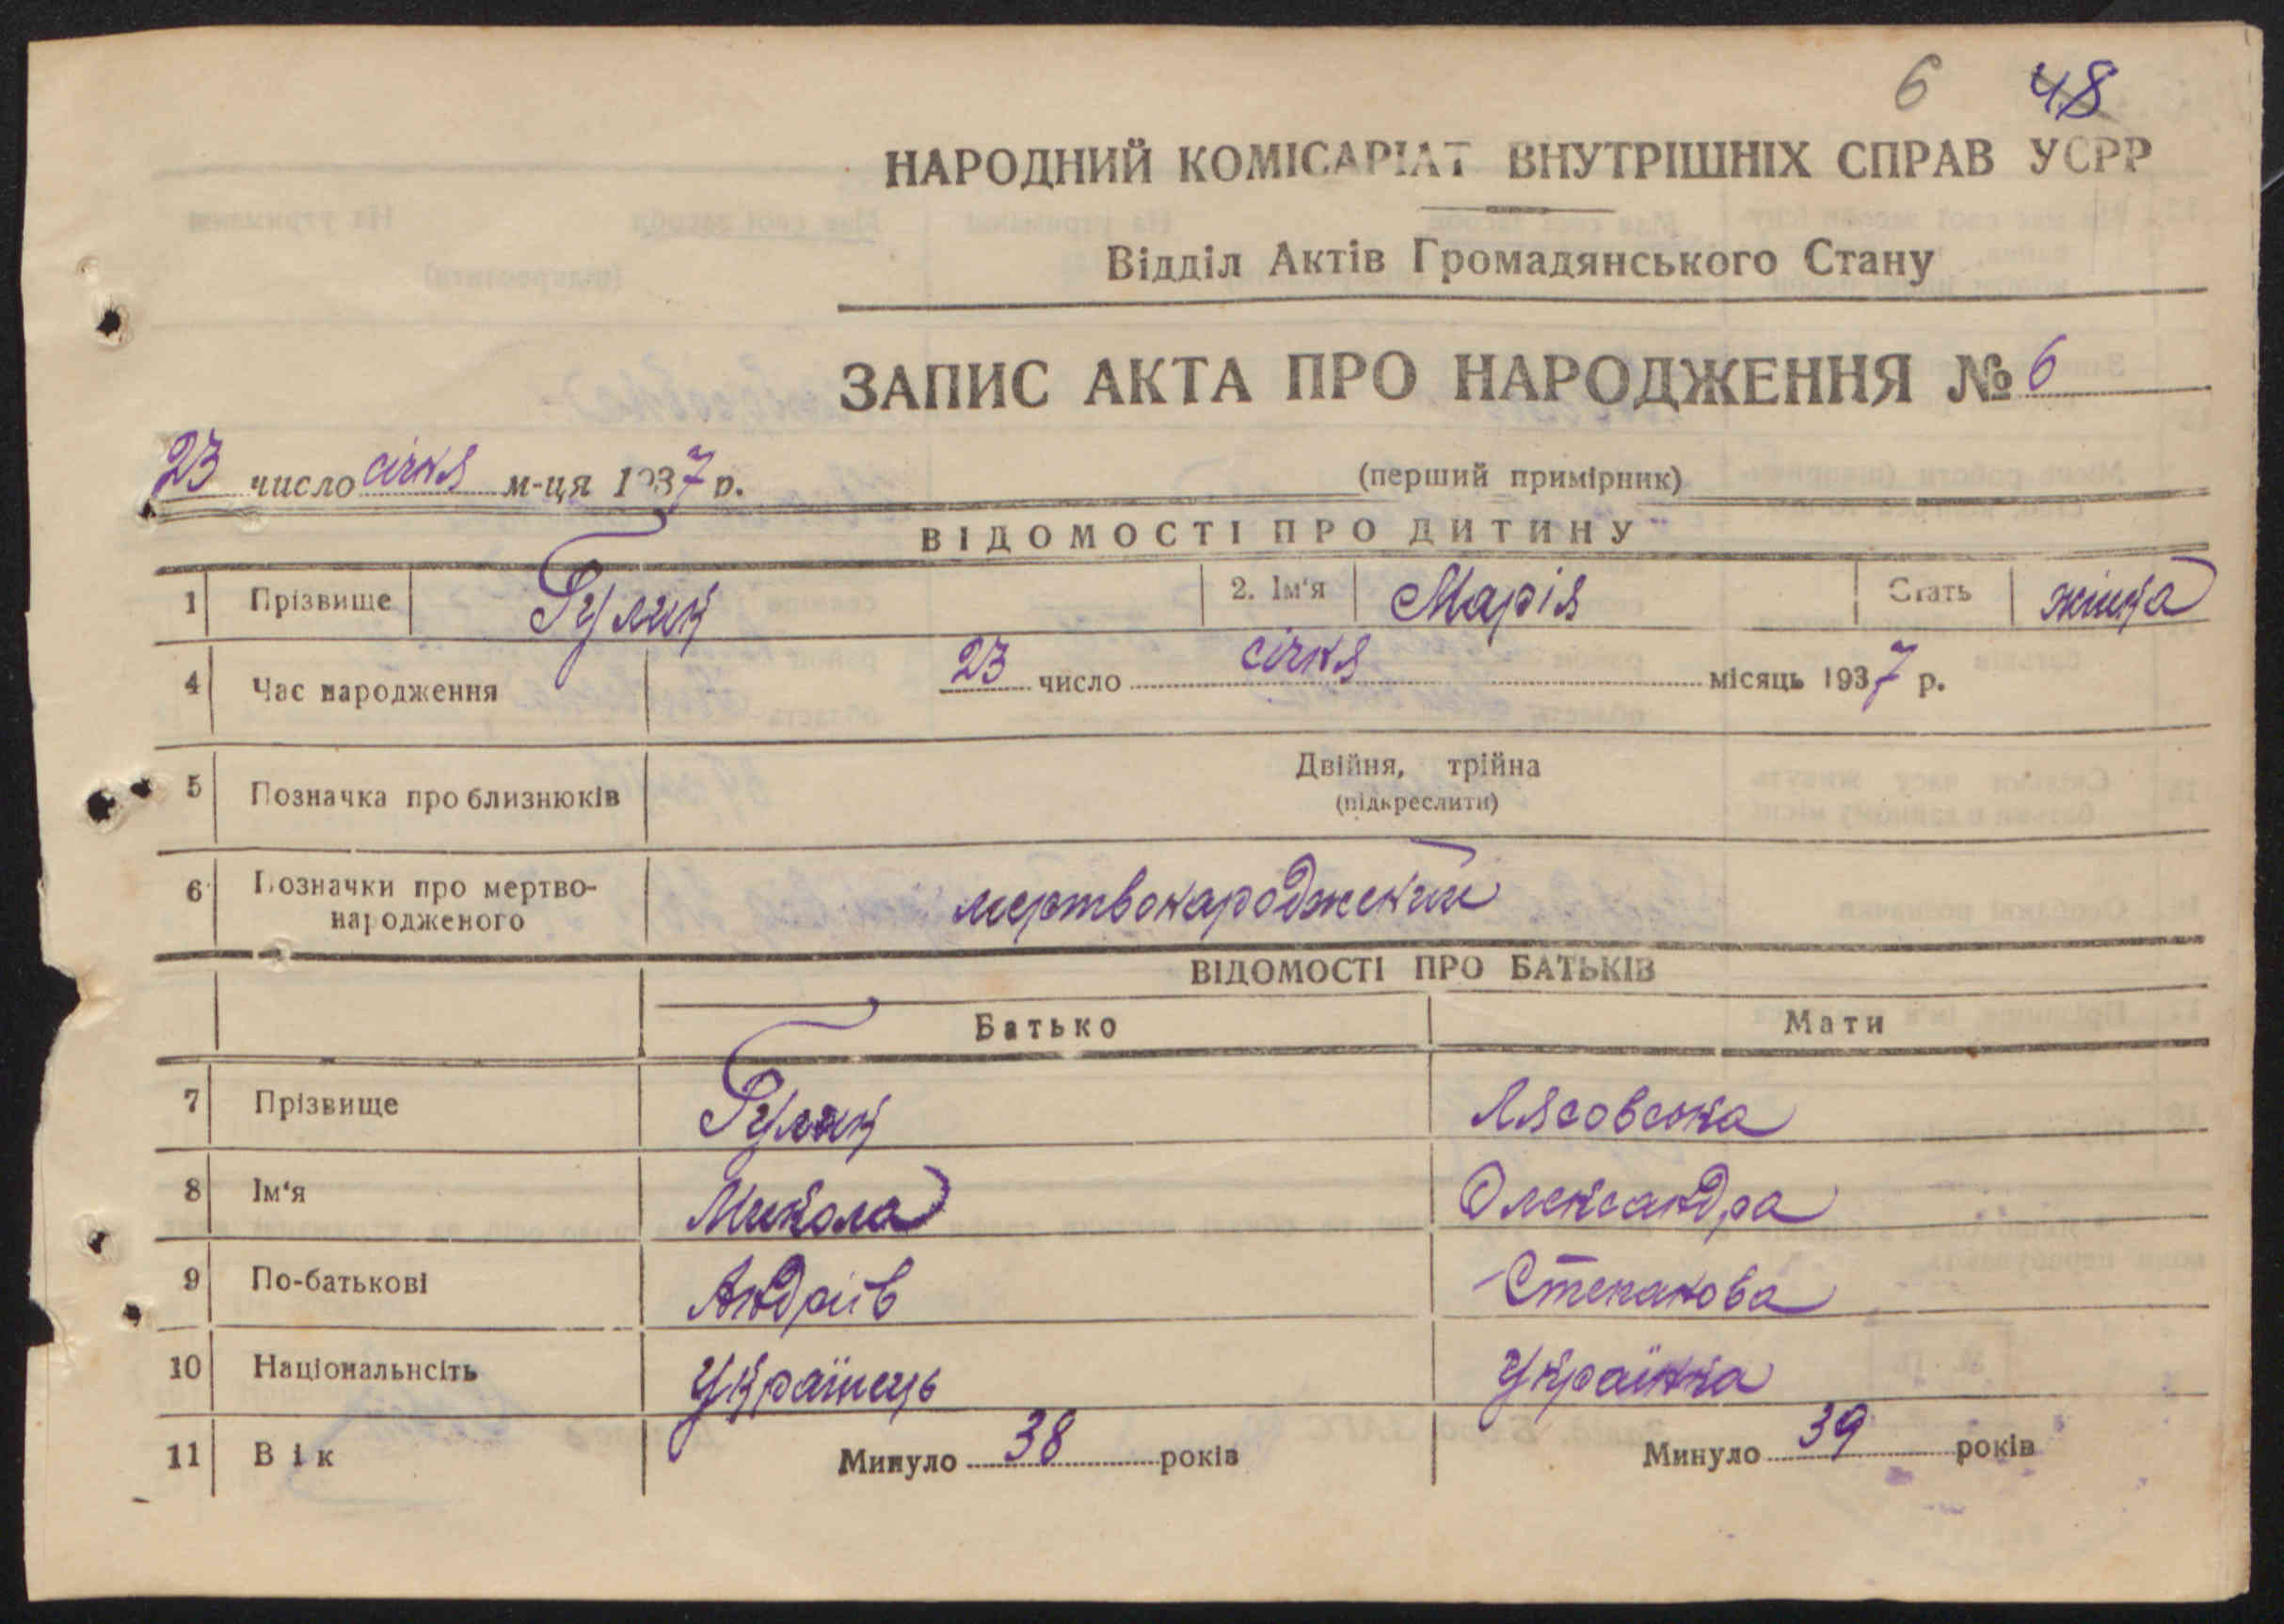 6 48
НАРОДНИЙ КОМІСАРІАТ ВНУТРІШНІХ СПРАВ УСРР
Відділ Актів Громадянського Стану
ЗАПИС АКТА ПРО НАРОДЖЕННЯ № 6
23 число січня м-ця 1937 р.
(перший примірник)
ВІДОМОСТІ ПРО ДИТИНУ
1 Прізвище Гулик 2. Ім'я Марія Стать жінка
4 Час народження 23 число січня місяць 1937 р.
5 Позначка про близнюків Двійня, трійна
(підкреслити)
6 Позначки про мертво-
народженого мертвонароджений
ВІДОМОСТІ ПРО БАТЬКІВ
Батько Мати
7 Прізвище Гулик Лясовська
8 Ім'я Микола Олександра
9 По-батькові Андріїв Степанова
10 Національнсіть Українець Українка
11 Вік Минуло 38 років Минуло 39 років